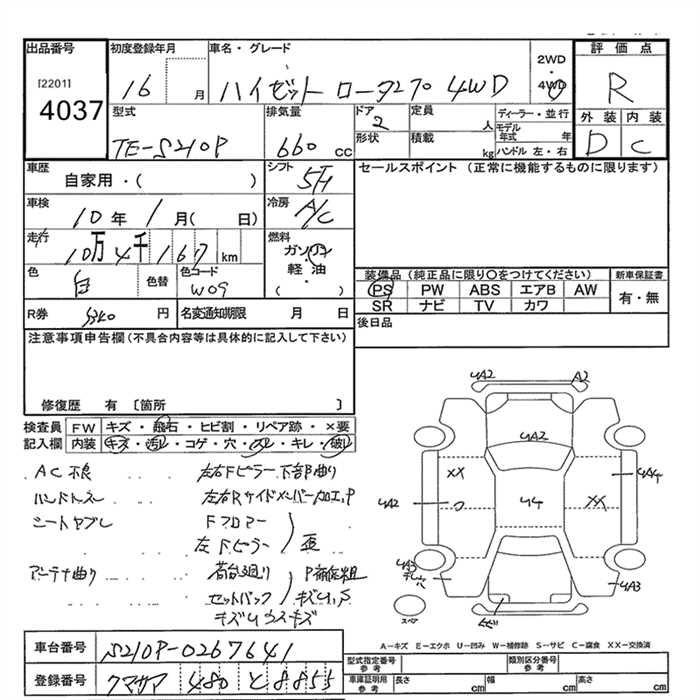 出品番号
[2201]
4037
初度登録年月
16 月
車名・グレード
ハイゼット 4WD
2WD・4WD
評価点
R
外装 内装
D C
型式
TE-S210P
排気量
660 cc
ドア
2
形状
定員
人
積載
kg
ディーラー・並行
モデル年式 年
ハンドル 左・右
車歴
自家用・( )
シフト
5F
セールスポイント (正常に機能するものに限ります)
車検
10年 1月( 日)
冷房
A/C
走行
10万4千167km
燃料
ガソリン
軽・油
( )
色
白
色替
色コード
W09
装備品 (純正品に限り○をつけてください)
PS PW ABS エアB AW
SR ナビ TV カワ
新車保証書
有・無
R券 円
名変通知期限 月 日
後日品
注意事項申告欄 (不具合内容等は具体的に記入して下さい)
修復歴 有 [箇所 ]
検査員記入欄
FW キズ・飛石・ヒビ割・リペア跡・×要
内装 キズ・汚レ・コゲ・穴・スレ・キレ・破レ
AC不良
シートヤブレ
アンテナ曲り
左右Fピラー下部曲り
左右Rサイドメンバー加工,P
Fフロアー
左Fピラー
歪
荷台廻り
セットバック
4A2 A2
4A2
XX
4A4
4A2
44
XX
4A3
4A3
スペア
A－キズ E－エクボ U－凹み W－補修跡 S－サビ C－腐食 XX－交換済
車台番号
S210P-0267641
登録番号
480 と 8855
型式指定番号
参考
類別区分番号
参考
車庫証明用
参考
長さ cm
幅 cm
高さ cm